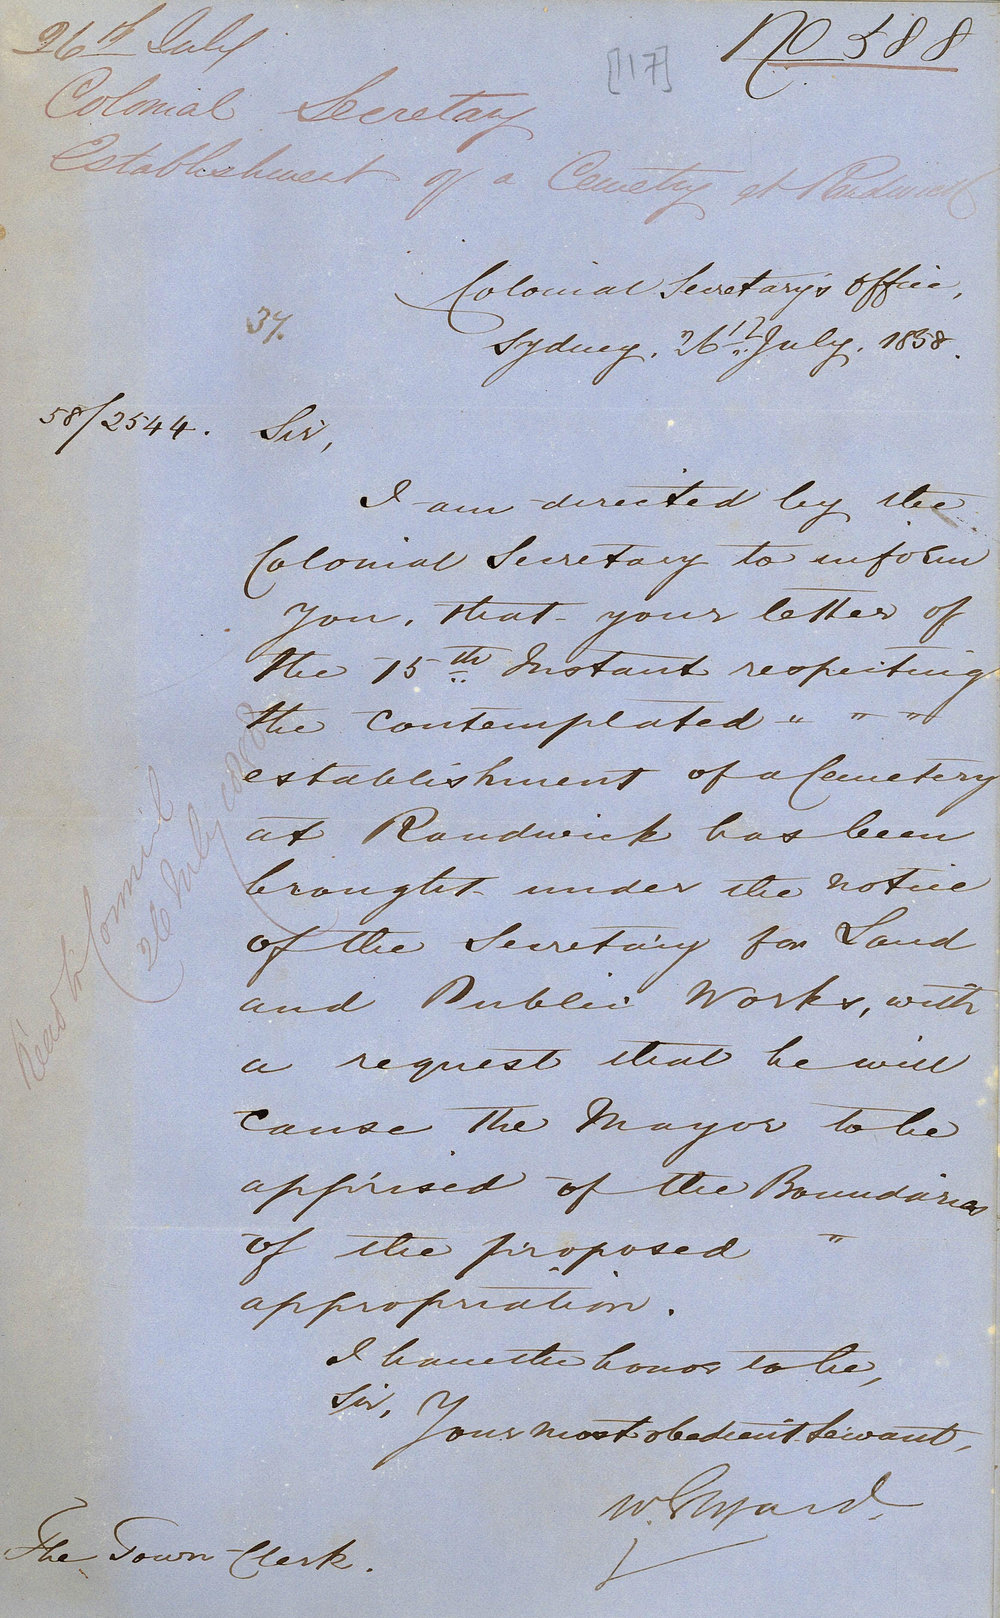 26th July
No 588
[117]
Colonial Secretary
Establishment of a Cemetry at Randwick
Colonial Secretary's Office,
37.
Sydney, 26th July, 1858.
58/2544.
Sir,
I am directed by the
Colonial Secretary to inform
You, that your letter of
the 15th Instant respecting
the contemplated " " "
establishment of a Cemetery
at Randwick has been
brought under the notice
of the Secretary for Land
and Public Works, with
a request that he will
cause the Mayor to be
apprised of the Boundaries
of the proposed "
appropriation.
I have the honor to be,
Sir,
Your most obedient Servant,
W. Elyard,
The Town Clerk.
Read to Council
26 July 1858